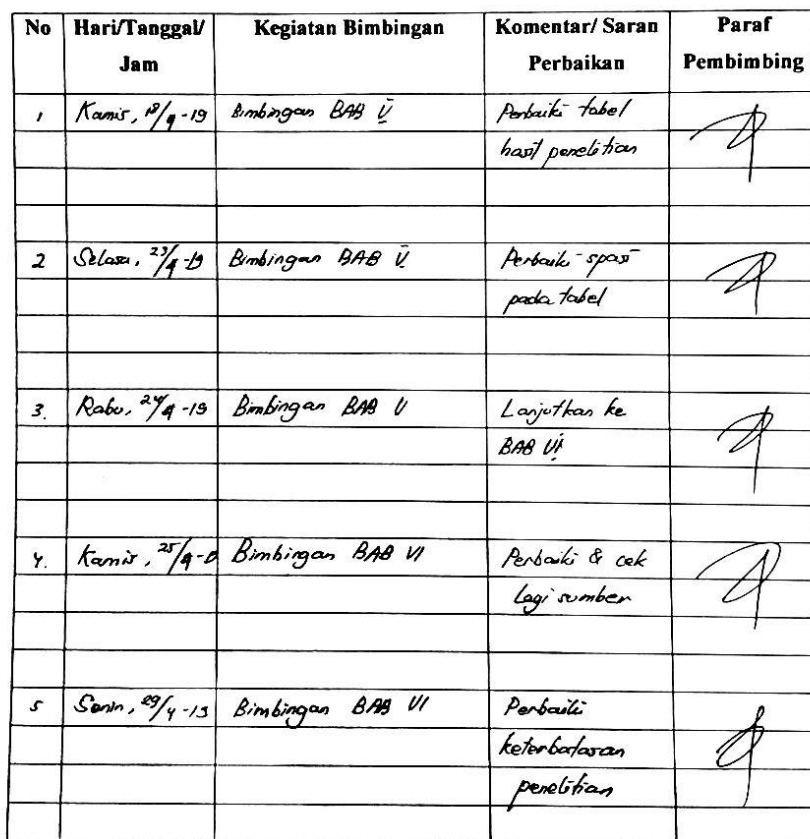 No Hari/Tanggal/ Jam Kegiatan Bimbingan Komentar/ Saran Perbaikan Paraf Pembimbing
1 Kamis, 18/4-19 Bimbingan BAB V Perbaiki tabel
hasil penelitian
2 Selasa, 23/4-19 Bimbingan BAB V Perbaiki spasi
pada tabel
3. Rabu, 24/4-19 Bimbingan BAB V Lanjutkan ke
BAB VI
4. Kamis, 25/4-19 Bimbingan BAB VI Perbaiki & cek
lagi sumber
5 Senin, 29/4-19 Bimbingan BAB VI Perbaiki
keterbatasan
penelitian